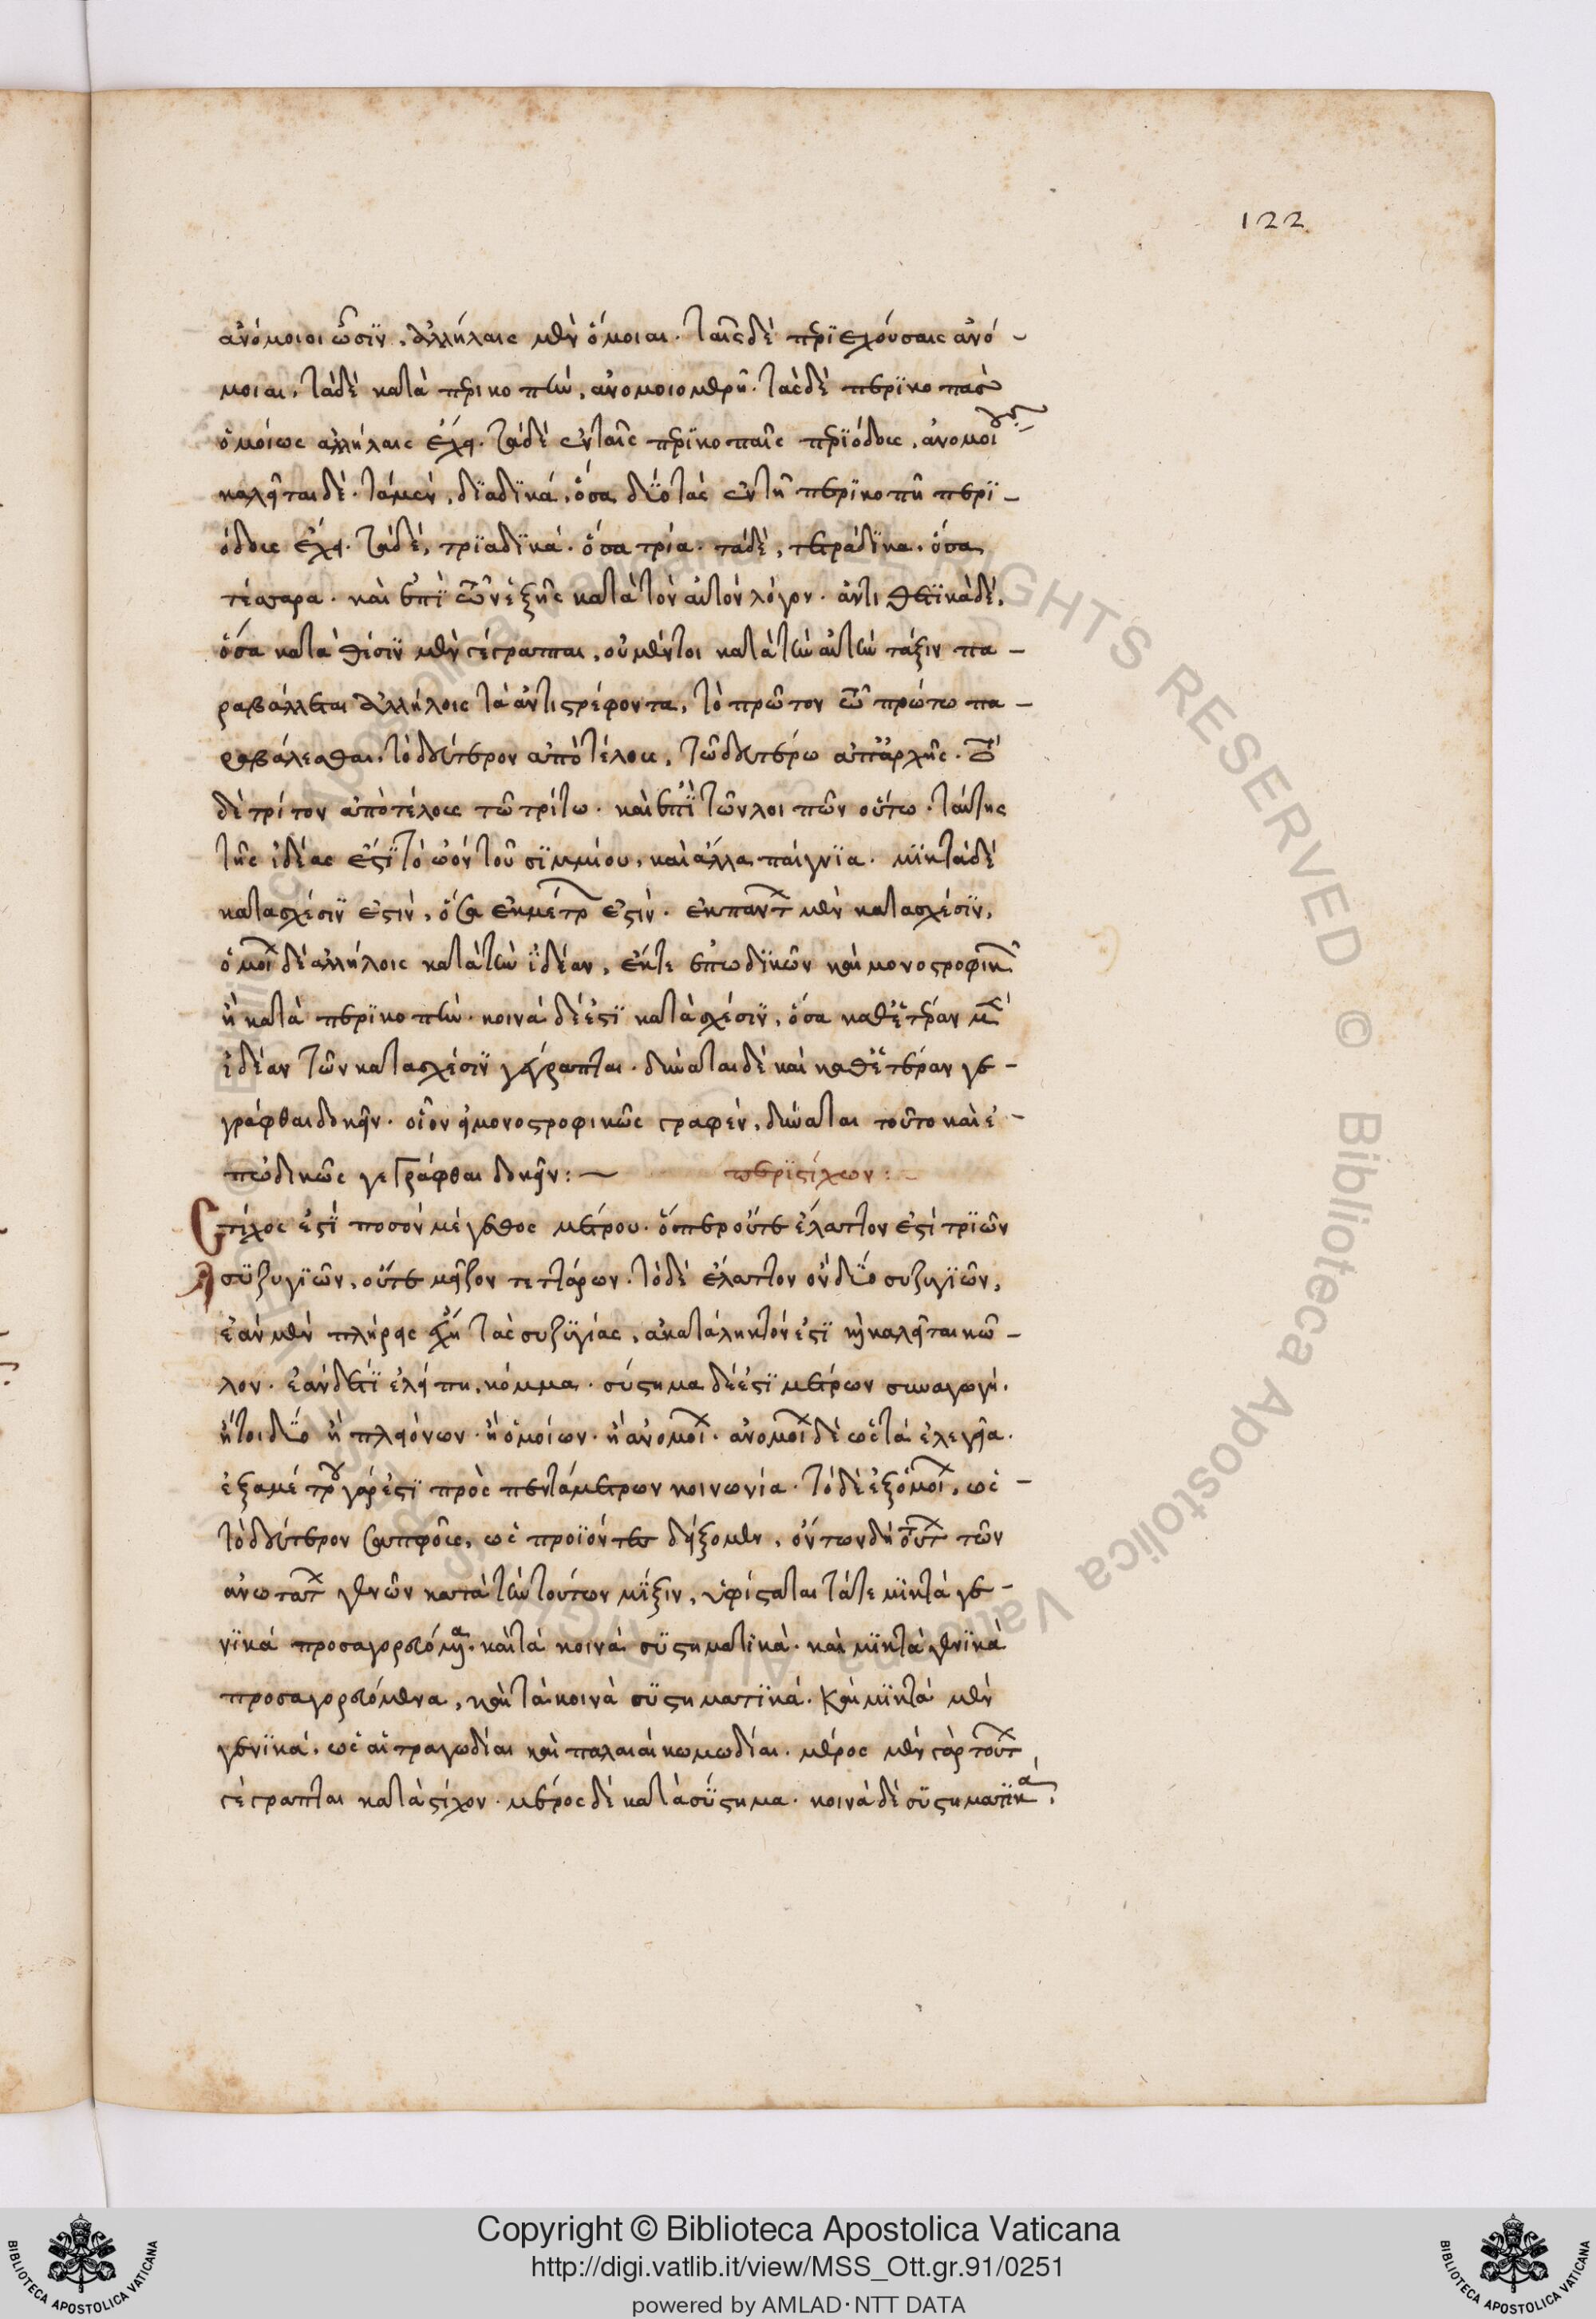 122
ἀνόμοιοι ὦσιν, ἀλλήλαις μὲν ὅμοιαι. ταῖς δὲ περϊεχούσαις ἀνό-
μοιαι. τὰ δὲ κατὰ περικοπὴν, ἀνομοιομερῆ. τὰς δὲ περϊκοπὰς
ὁμοίως ἀλλήλαις ἔχει. τὰ δὲ ἐν ταῖς περϊκοπαῖς περϊόδοις, ἀνομοί
καλεῖται δὲ. τὰ μὲν, δϊαδϊκά. ὅσα δύο τὰς ἐν τῇ περϊκοπῇ περϊ-
όδους ἔχει. τὰ δὲ, τρϊαδϊκά. ὅσα τρία. τὰ δὲ, τετραδϊκα. ὅσα
τέσσαρα. καὶ ἐπῒ τῶν ἑξῆς κατὰ τὸν αὐτὸν λόγον. ἀντιθετϊκὰ δὲ,
ὅσα κατὰ θέσϊν μὲν γέγραπται, οὐ μέντοι κατὰ τὴν αὐτὴν τάξιν πα-
ραβάλλεται ἀλλήλοις τὰ ἀντιστρέφοντα, τὸ πρῶτον τῶ πρώτω πα-
ραβάλεσθαι. τὸ δεύτερον ἀπὸ τέλους, τῶ δευτέρω ἀπ' ἀρχῆς. τὸ
δὲ τρίτον ἀπὸ τέλους τῶ τρίτω. καὶ ἐπῒ τῶν λοιπῶν οὕτω. ταύτης
τῆς ἰδέας ἐστῒ τὸ ὠὸν τοῦ σϊμμίου, καὶ ἄλλα παίγνϊα. μϊκτὰ δὲ
κατασχέσϊν ἐστιν, ὅσα ἐκ μέτρ ἐστιν. ἐκ παντ μὲν κατασχέσϊν,
ὁμοί δὲ ἀλλήλοις κατὰ τὴν ἰδέαν, ἔκτε ἐπωδϊκῶν καὶ μονοστροφικ
ἢ κατὰ περϊκοπὴν. κοινὰ δέ ἐστϊ κατὰ σχέσϊν, ὅσα καθ' ἑτέραν μὲν
ἰδέαν τῶν κατασχέσϊν γέγραπται. δύναται δὲ καὶ καθ' ἑτέραν γε-
γράφθαι δοκεῖν. οἷον εἰ μονοστροφικῶς γραφὲν, δύναται τοῦτο καὶ ἐ-
πωδικῶς γεγράφθαι δοκεῖν:— περϊ στίχων:
Στίχος ἐστῒ ποσὸν μέγεθος μέτρου. ὅπερ οὔτε ἔλαττον ἐστὶ τρϊῶν
συζυγϊῶν, οὔτε μεῖζον τεττάρων. τὸ δὲ ἔλαττον ὂν δύο συζυγϊῶν,
ἐὰν μὲν πλήρεις ἔχη τὰς συζυγίας, ἀκατάληκτόν ἐστϊ καὶ καλεῖται κῶ-
λον. ἐὰν δέ τϊ ἐλείπη, κόμμα. σύστημα δέ ἐστϊ μέτρων συναγωγὴ.
ἤτοι δύο ἢ πλειόνων. ἢ ὁμοίων. ἢ ἀνομοί. ἀνομοί δὲ ὡς τὰ ἐλεγεῖα.
ἑξαμέτρου γάρ ἐστϊ πρὸς πεντάμετρων κοινωνία. τὸ δὲ ἐξ ὁμοί, ὡς -
τὸ δεύτερον σαπφοῦς, ὡς προϊόντες δείξομεν. ὄντων δὴ τούτ τῶν
ἀνωτάτ γενῶν κατὰ τὴν τούτων μῖξιν, ὑφίσταται τάτε μϊκτὰ γε-
νϊκά προσαγορευόμενα. καὶ τὰ κοινὰ συστηματικὰ. καὶ μϊκτὰ γενϊκὰ
προσαγορευόμενα, καὶ τὰ κοινὰ συστηματϊκά. καὶ μϊκτὰ μὲν
γενϊκά. ὡς αἱ τραγωδίαι καὶ παλαιαὶ κωμωδίαι. μέρος μὲν γὰρ τούτ
γέγραπται κατὰ στίχον. μέρος δὲ κατὰ σύστημα. κοινὰ δὲ συστηματϊκὰ
Copyright © Biblioteca Apostolica Vaticana
http://digi.vatlib.it/view/MSS_Ott.gr.91/0251
powered by AMLAD·NTT DATA
BIBLIOTECA APOSTOLICA VATICANA
BIBLIOTECA APOSTOLICA VATICANA